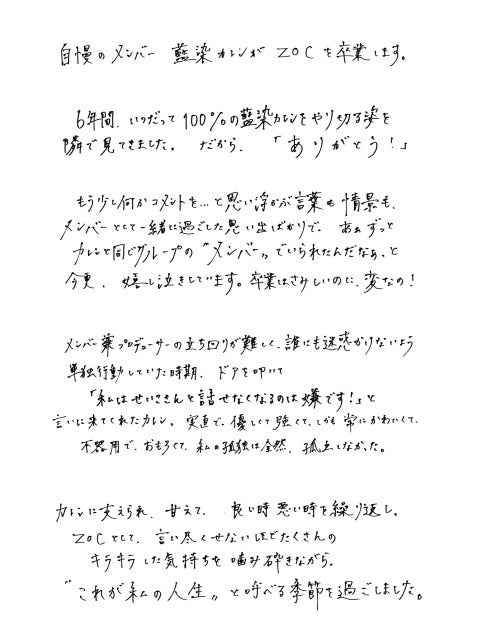 自慢のメンバー 藍染カレンが ZOC を卒業します。
6年間、いつだって100%の藍染カレンをやり切る姿を
隣で見てきました。 だから、 「ありがとう!」
もう少し何かコメントを…と思い浮かぶ言葉も情景も、
メンバーとして一緒に過ごした思い出ばかりで、あぁずっと
カレンと同じグループの〝メンバー〟でいられたんだなぁ、と
今更、嬉し泣きしています。卒業はさみしいのに、変なの!
メンバー兼プロデューサーの立ち回りが難しく、誰にも迷惑かけないよう
単独行動していた時期、ドアを叩いて
「私はせいこさんと話せなくなるのは嫌です!」と
言いに来てくれたカレン。実直で、優しくて強くて、しかも常にかわいくて、
不器用で、おもろくて、私の孤独は全然、孤立しなかった。
カレンに支えられ、甘えて、 良い時悪い時を繰り返し、
ZOCとして、言い尽くせないほどたくさんの
キラキラした気持ちを噛み砕きながら、
〝これが私の人生〟と呼べる季節を過ごしました。